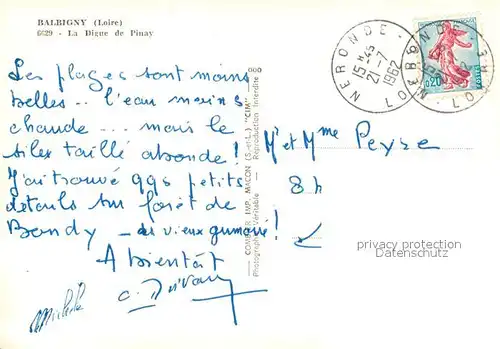 BALBIGNY (Loire)
6629 - La Digue de Pinay
Les plages sont moins
belles .. l'eau moins
chaude ... mais le
silex taillé abonde !
J'ai trouvé qqs petits
détails sur forêt de
Bondy
A bientôt
Michèle
COMBIER IMP. MACON (S.-et-L.) "CIM"
Photographie Véritable - Reproduction Interdite
NERONDE
LOIRE
15H45
21-7
1962
0,20
POSTES
Mr et Mme Peyse
8 h
privacy protection
Datenschutz